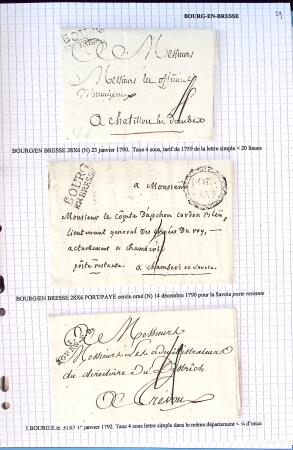 BOURG-EN-BRESSE
29
A Messieurs
Messieurs les officiers
Municipaux
A chatillon les Dombes
BOURG/EN BRESSE 28X6 (N) 23 janvier 1790. Taxe 4 sous, tarif de 1759 de la lettre simple < 20 lieues
BOURG
EN BRESSE
PORT
PAYE
a Monsieur
Monsieur le Comte Dapchon cordon Bleu,
lieutenant general Des armées du roy,
actuellement a chamberi
poste restante
a chamberi en savoie
BOURG/EN BRESSE 28X6 PORT/PAYE cercle orné (N) 14 décembre 1790 pour la Savoie poste restante
A Messieurs
Messieurs les administrateurs
du directoire du District
A Trevoux
1 BOURG.E.B. 31X7 1° janvier 1792. Taxe 4 sous lettre simple dans le même département < ¼ d'once